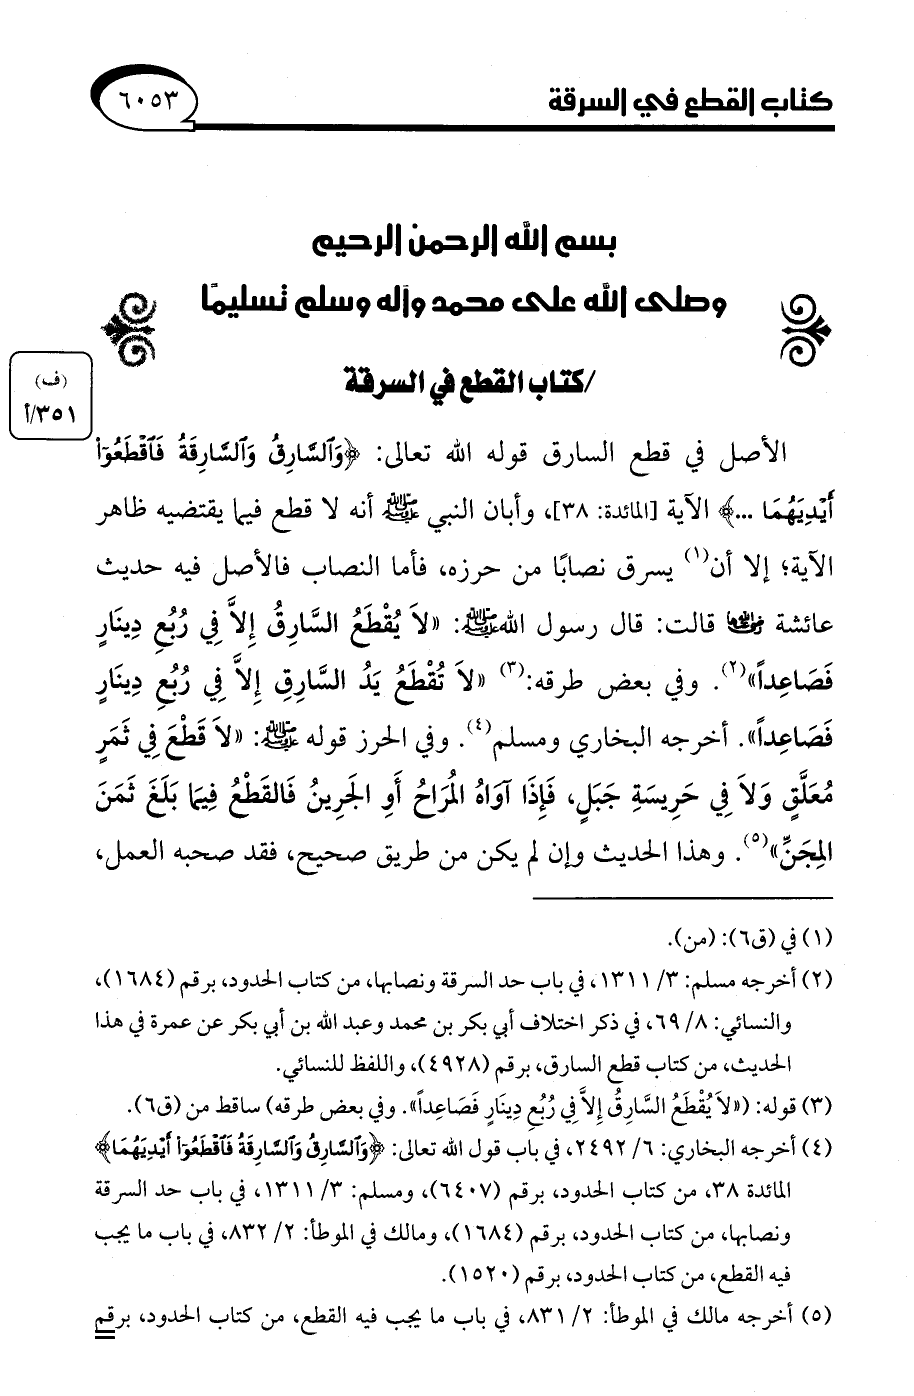 كتاب القطع في السرقة
٦٠٥٣
بسم الله الرحمن الرحيم
وصلى الله على محمد وآله وسلم تسليمًا
/كتاب القطع في السرقة
(ف)
٣٥١/أ
الأصل في قطع السارق قوله الله تعالى: ﴿وَٱلسَّارِقُ وَٱلسَّارِقَةُ فَٱقْطَعُوٓا۟
أَيْدِيَهُمَا ...﴾ الآية [المائدة: ٣٨]، وأبان النبي ﷺ أنه لا قطع فيما يقتضيه ظاهر
الآية؛ إلا أن(١) يسرق نصابًا من حرزه، فأما النصاب فالأصل فيه حديث
عائشة رضي الله عنها قالت: قال رسول الله ﷺ: «لاَ يُقْطَعُ السَّارِقُ إِلاَّ فِي رُبُعِ دِينَارٍ
فَصَاعِداً»(٢). وفي بعض طرقه:(٣) «لاَ تُقْطَعُ يَدُ السَّارِقِ إِلاَّ فِي رُبُعِ دِينَارٍ
فَصَاعِداً». أخرجه البخاري ومسلم(٤). وفي الحرز قوله ﷺ: «لاَ قَطْعَ فِي ثَمَرٍ
مُعَلَّقٍ وَلاَ فِي حَرِيسَةِ جَبَلٍ، فَإِذَا آوَاهُ المُرَاحُ أَوِ الجَرِينُ فَالقَطْعُ فِيمَا بَلَغَ ثَمَنَ
المِجَنِّ»(٥). وهذا الحديث وإن لم يكن من طريق صحيح، فقد صحبه العمل،
(١) في (ق٦): (من).
(٢) أخرجه مسلم: ٣/ ١٣١١، في باب حد السرقة ونصابها، من كتاب الحدود، برقم (١٦٨٤)،
والنسائي: ٨/ ٦٩، في ذكر اختلاف أبي بكر بن محمد وعبد الله بن أبي بكر عن عمرة في هذا
الحديث، من كتاب قطع السارق، برقم (٤٩٢٨)، واللفظ للنسائي.
(٣) قوله: («لاَ يُقْطَعُ السَّارِقُ إِلاَّ فِي رُبُعِ دِينَارٍ فَصَاعِداً». وفي بعض طرقه) ساقط من (ق٦).
(٤) أخرجه البخاري: ٦/ ٢٤٩٢، في باب قول الله تعالى: ﴿وَٱلسَّارِقُ وَٱلسَّارِقَةُ فَٱقْطَعُوٓا۟ أَيْدِيَهُمَا﴾
المائدة ٣٨، من كتاب الحدود، برقم (٦٤٠٧)، ومسلم: ٣/ ١٣١١، في باب حد السرقة
ونصابها، من كتاب الحدود، برقم (١٦٨٤)، ومالك في الموطأ: ٢/ ٨٣٢، في باب ما يجب
فيه القطع، من كتاب الحدود، برقم (١٥٢٠).
(٥) أخرجه مالك في الموطأ: ٢/ ٨٣١، في باب ما يجب فيه القطع، من كتاب الحدود، برقم